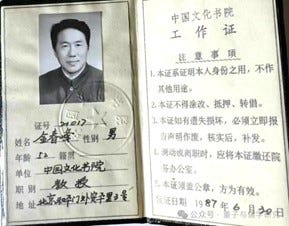 证号 21012
姓名 金春峰 性别 男
年龄 52 籍贯
单位 中国文化书院
职别 教授
地址 北京
中国文化书院
工作证
注意事项
1.本证系证明本人身份之用,不作
其他用途。
2.本证不得涂改、抵押、转借。
3.本证如遗失损坏,必须立即报
告声明作废,核实后,补发。
4.调动或离职时,应将本证缴还院
务办公室。
5.本证须盖公章,方为有效。
发证日期 1987年6月30日
公众号·量子